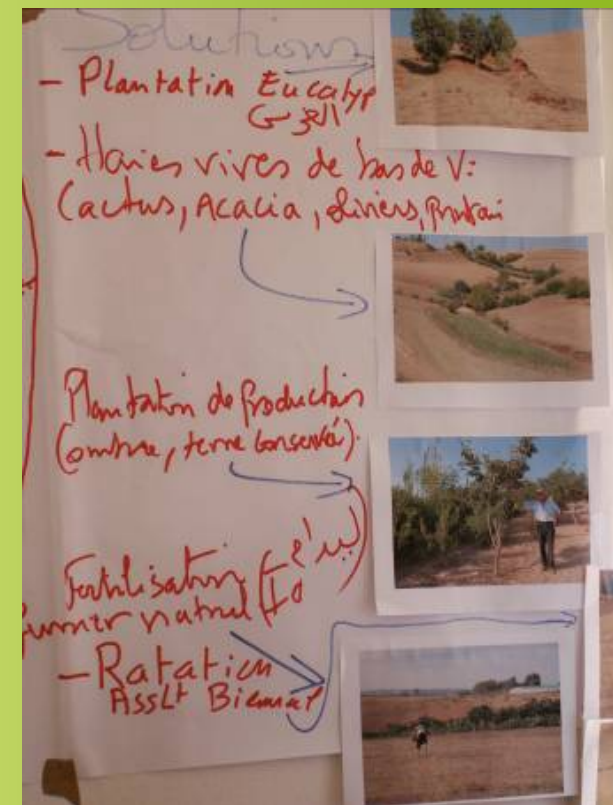 Solutions
- Plantation Eucalyp
- Haies vives de bas de V:
Cactus, Acacia, oliviers,
Plantation de production
(ombre, terre conservé).
Fertilisation
fumier natural
- Ratation
AssLt Biennal